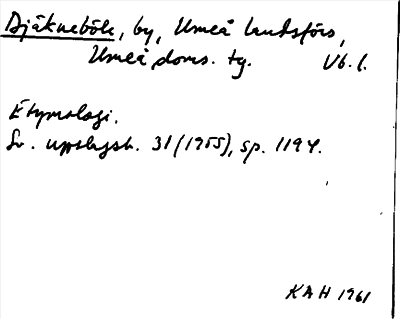 Djäkneböle, by, Umeå landsförs,
Umeå doms. tg. Vb. l.
Etymologi.
Sv. uppslagsb. 31 (1955), sp. 1194.
KAH 1961